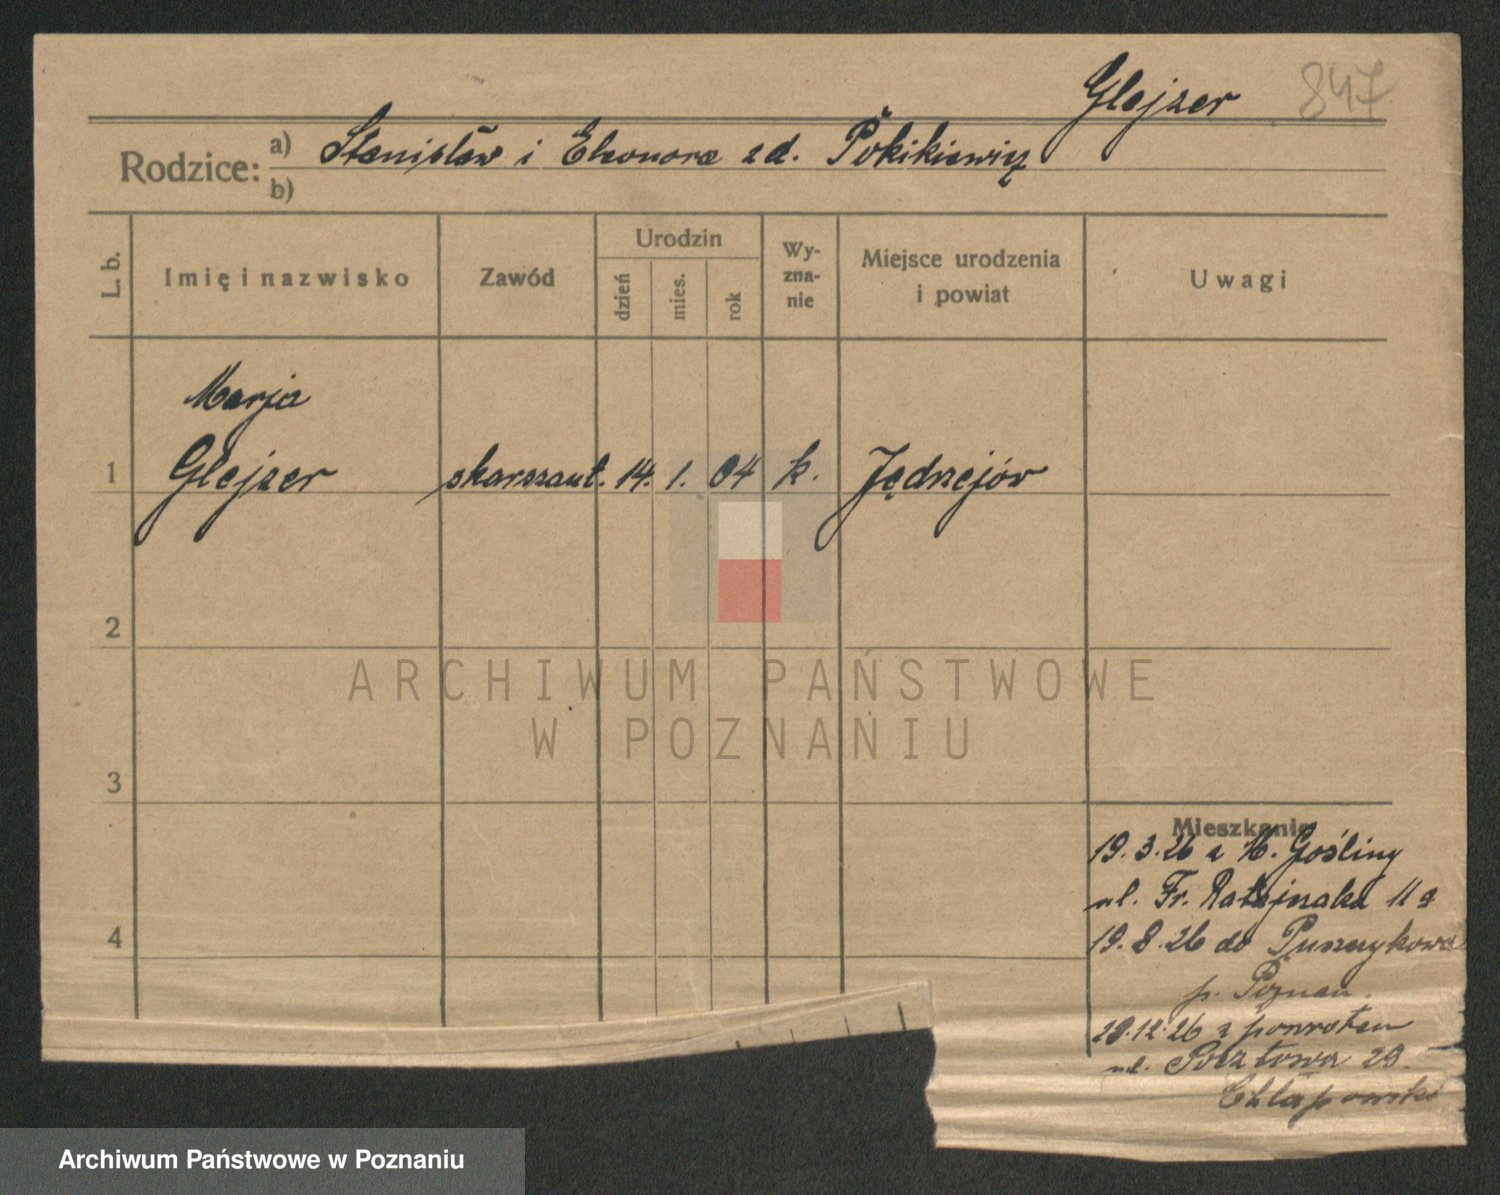 Glejzer 847
Rodzice: a) Stanisław i Eleonora zd. Pókikiewicz
b)
L. b.
Imię i nazwisko
Zawód
Urodzin
dzień
mies.
rok
Wy-
zna-
nie
Miejsce urodzenia
i powiat
Uwagi
Marja
1 Glejzer 14. 1. 04 k. Jędrzejów
2
3
4
Mieszkanie
19. 3. 26 z M. Gośliny
ul. Fr. Ratajczaka 11a
19. 8. 26 do Puszczykowa
p. Poznań.
12. 26 z powrotem
ul. Pocztowa 29
Chłapowski
ARCHIWUM PAŃSTWOWE
W POZNANIU
Archiwum Państwowe w Poznaniu